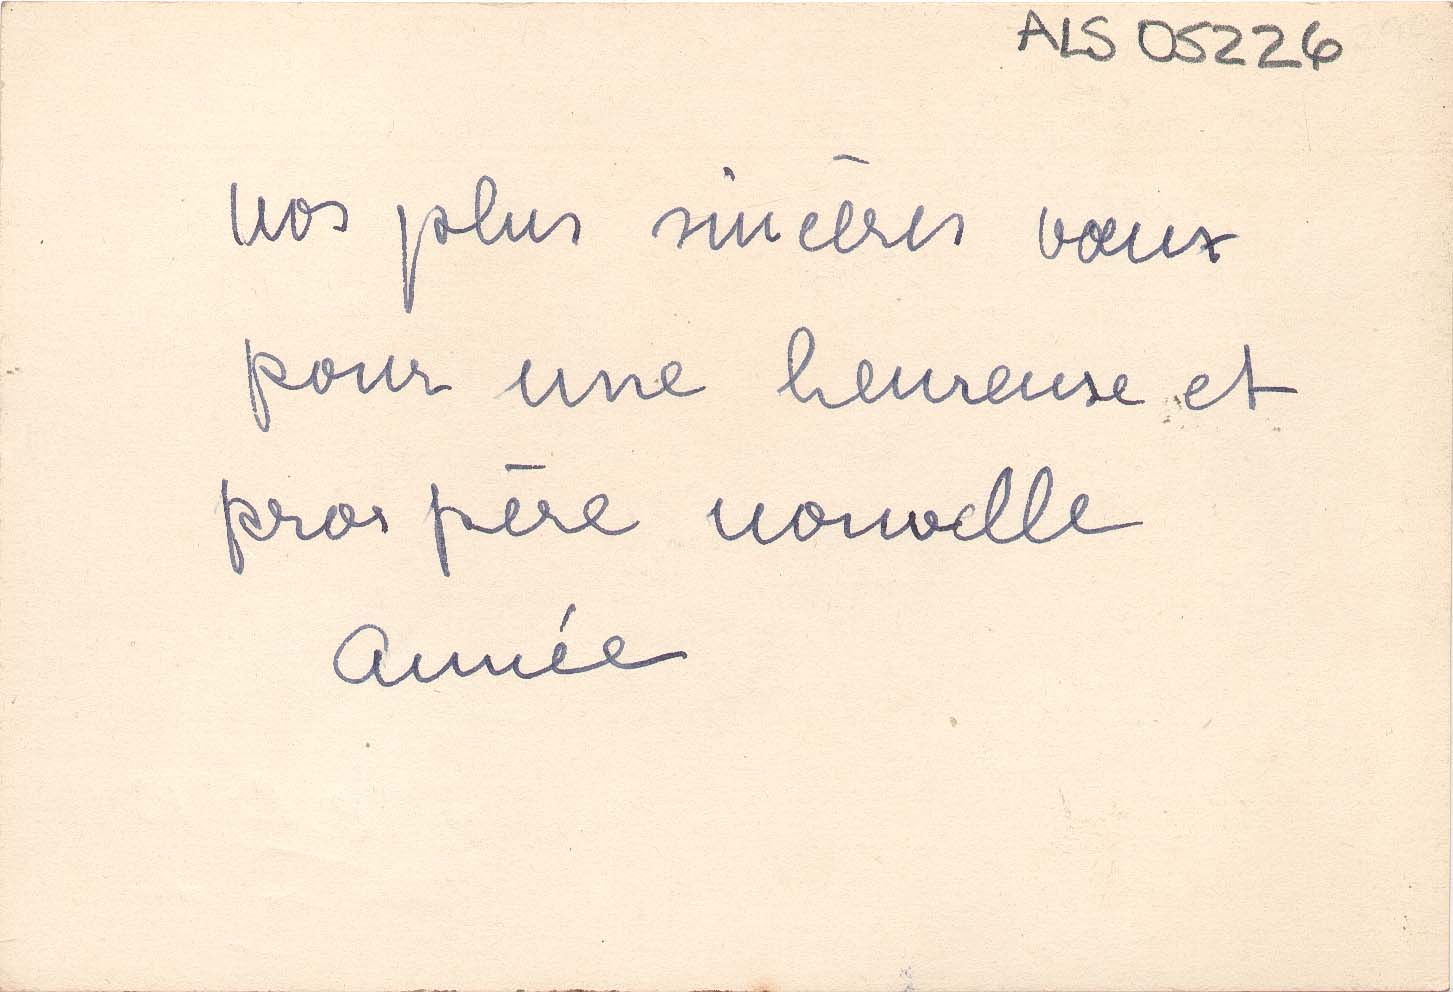 ALS 05226
Nos plus sincères vœux
pour une heureuse et
prospère nouvelle
Année